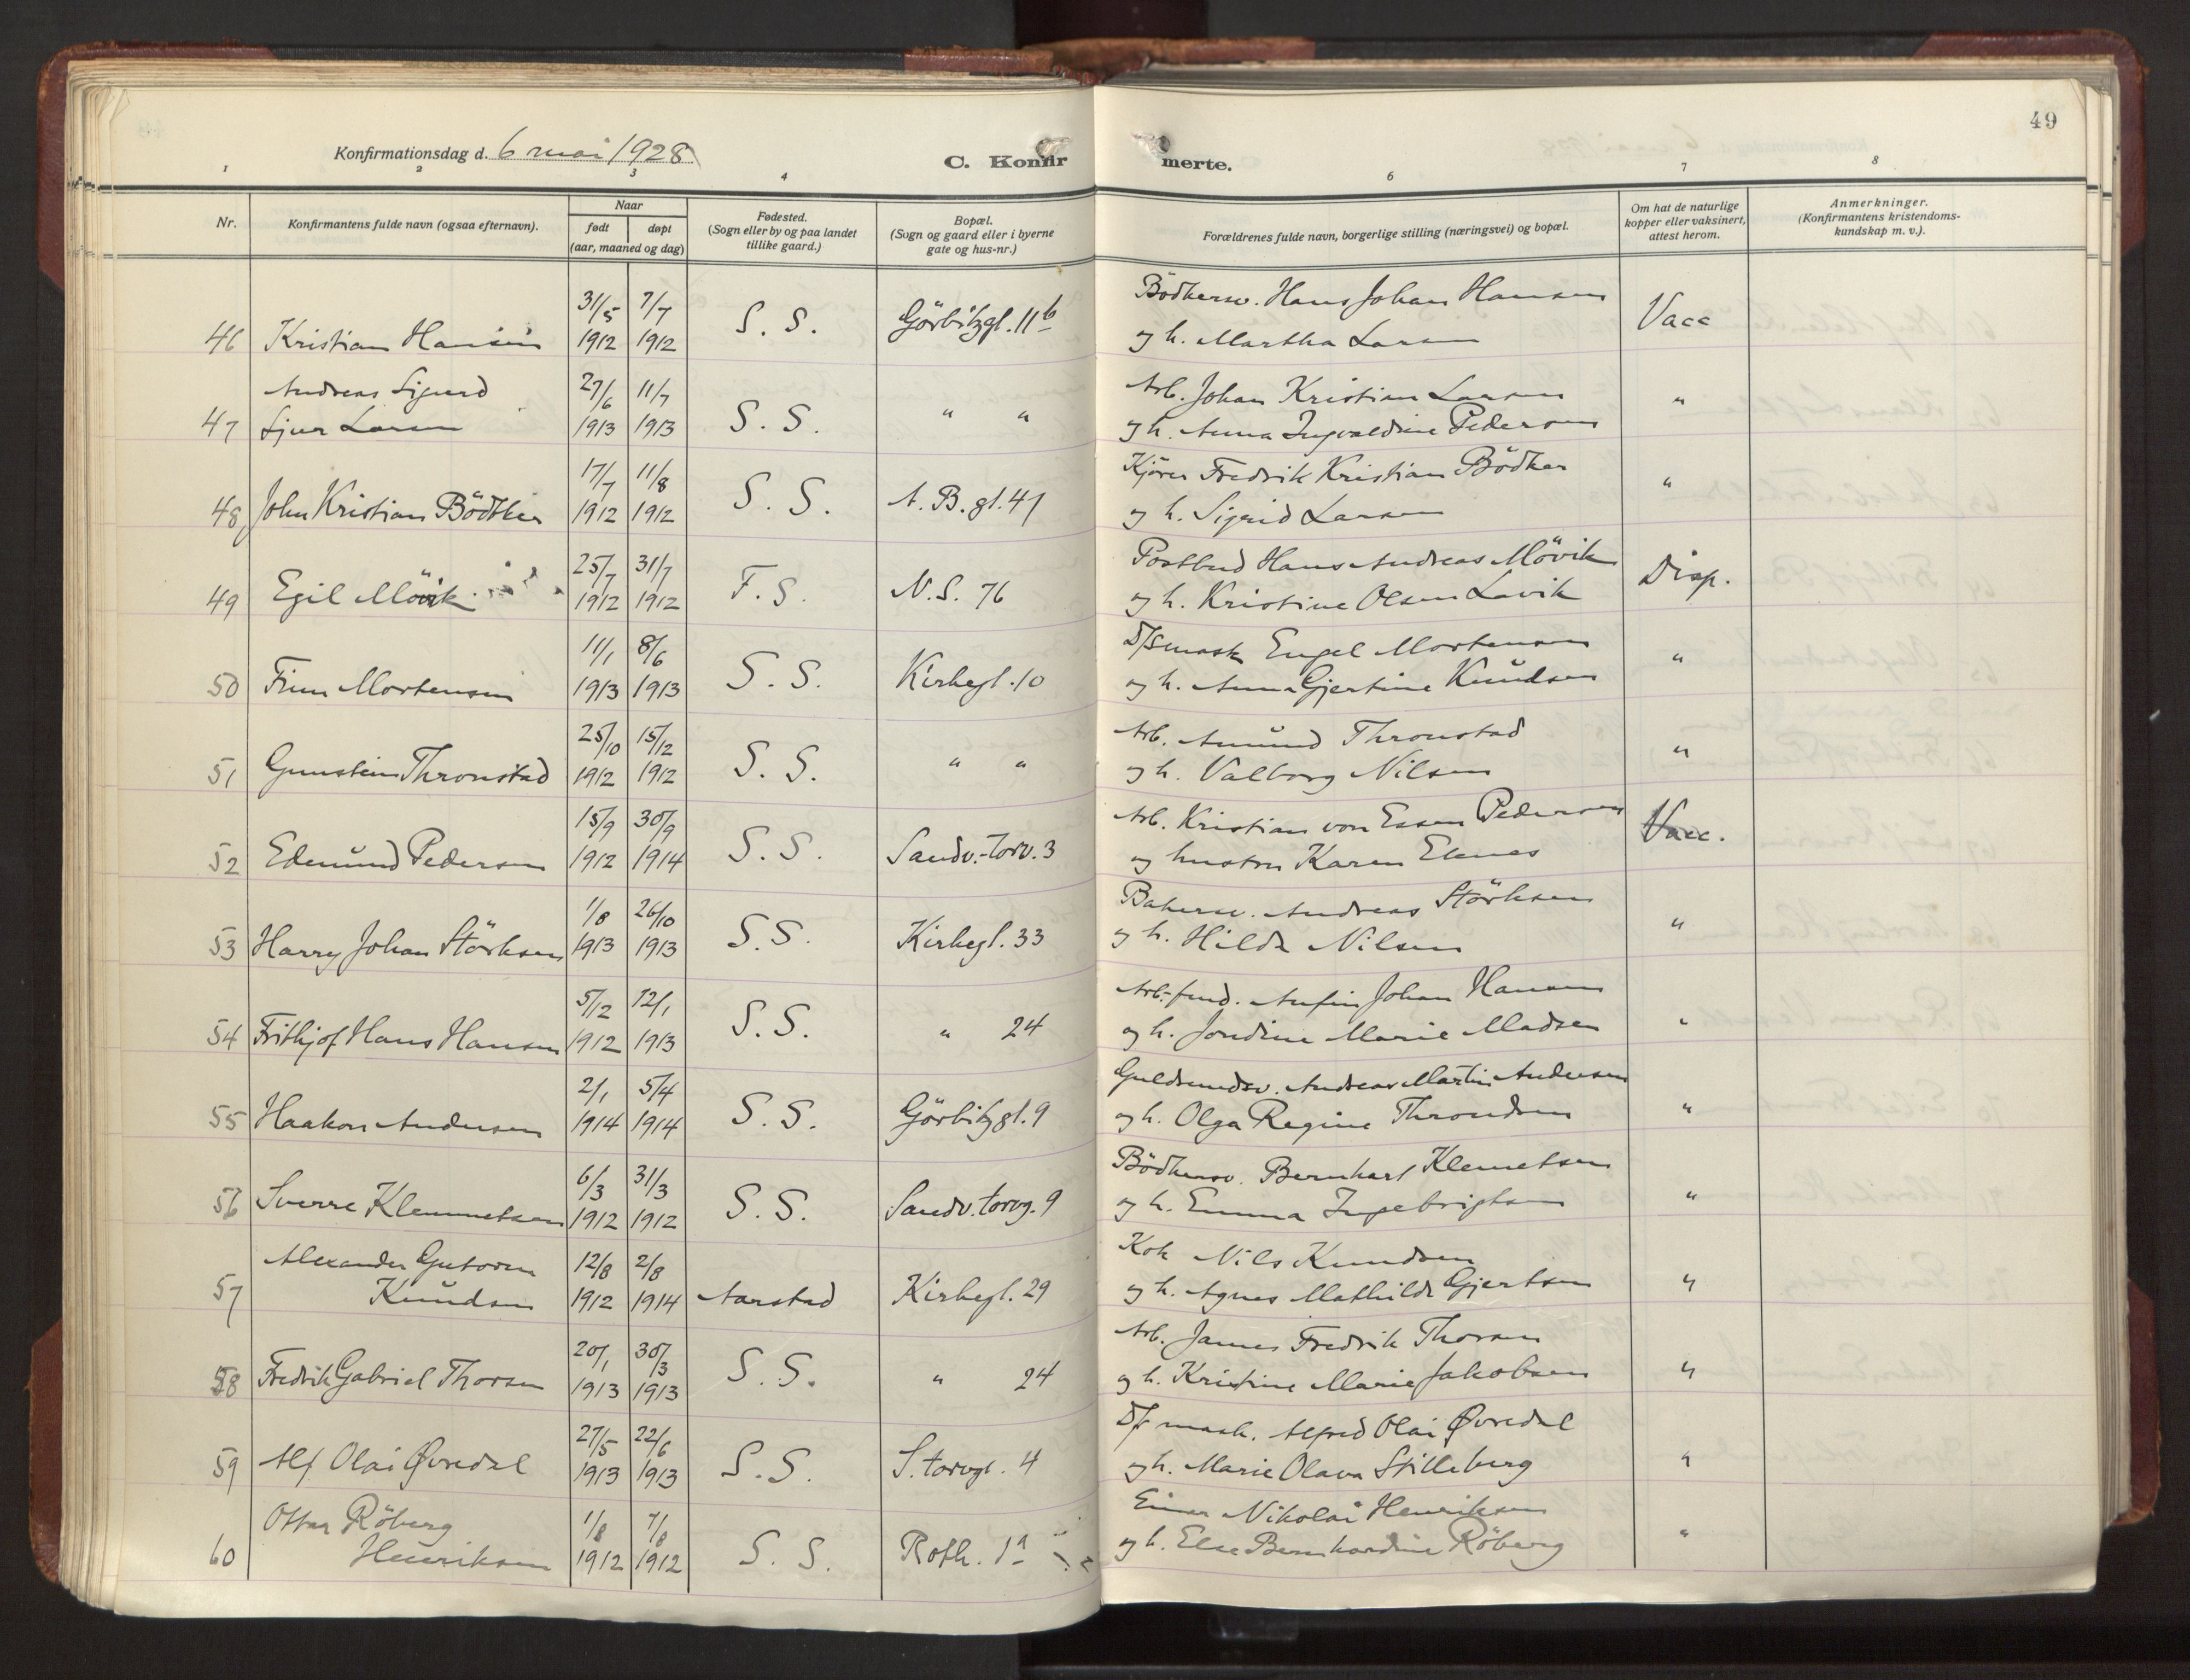 49
Konfirmationsdag d. 6 mai 1928
C. Konfirmerte.
1 2 3 4 6 7 8
Nr.
Konfirmantens fulde navn (ogsaa efternavn).
Naar
født døpt
(aar, maaned og dag)
Fødested.
(Sogn eller by og paa landet
tillike gaard.)
Bopæl.
(Sogn og gaard eller i byerne
gate og hus-nr.)
Forældrenes fulde navn, borgerlige stilling (næringsvei) og bopæl.
Om hat de naturlige
kopper eller vaksinert,
attest herom.
Anmerkninger.
(Konfirmantens kristendoms-
kundskap m. v.).
31/5 7/7 Bödkersv. Hans Johan Hansen
46 Kristian Hansen 1912 1912 S. S. Görbitzgt. 11b og h. Martha Larsen Vacc
Andreas Sigurd 27/6 11/7 Arb. Johan Kristian Larsen
47 Sjur Larsen 1913 1913 S. S. " " og h. Anna Ingvaldine Pedersen "
17/7 11/8 Kjörer Fredrik Kristian Bödker
48 John Kristian Bödtker 1912 1912 S. S. A. B. gt. 41 og h. Sigrid Larsen "
25/7 31/7 Postbud Hans Andreas Mövik
49 Egil Mövik 1912 1912 F. S. N. S. 76 og h. Kristine Olsen Lavik Disp.
11/1 8/6 D/S mask Engel Mortensen
50 Finn Mortensen 1913 1913 S. S. Kirkegt. 10 og h. Anna Gjertine Knudsen "
25/10 15/12 Arb. Amund Thronstad
51 Gunstein Thronstad 1912 1912 S. S. " " og h. Valborg Nilsen "
15/9 30/9 Arb. Kristian von Essen Pedersen
52 Edmund Pedersen 1912 1914 S. S. Sandv.-torv. 3 og hustru Karen Elenes Vacc.
1/8 26/10 Bakersv. Andreas Störksen
53 Harry Johan Störksen 1913 1913 S. S. Kirkegt. 33 og h. Hilda Nilsen "
5/12 12/1 Arb.-fmd. Anfin Johan Hansen
54 Frithjof Hans Hansen 1912 1913 S. S. " 24 og h. Jondine Marie Madsen "
2/1 5/4 Guldsmedsv. Andreas Martin Andersen
55 Haakon Andersen 1914 1914 S. S. Görbitzgt. 9 og h. Olga Regine Throndsen "
6/3 31/3 Bödkersv. Bernhart Klemetsen
56 Sverre Klemmetsen 1912 1912 S. S. Sandv. torvg. 9 og h. Emma Ingebrigtsen "
Alexander Gutorm 12/8 2/8 Kok Nils Knudsen
57 Knudsen 1912 1914 Aarstad Kirkegt. 29 og h. Agnes Mathilde Gjertsen "
20/1 30/3 Arb. James Fredrik Thorsen
58 Fredrik Gabriel Thorsen 1913 1913 S. S. " 24 og h. Kristine Marie Jakobsen "
27/5 22/6 D/S mask. Alfred Olai Øvredal
59 Alf Olai Øvredal 1913 1913 S. S. S. torvgt. 4 og h. Marie Olava Stilleberg "
Ottar Röberg 1/8 7/8 Einar Nikolai Henriksen
60 Henriksen 1912 1912 S. S. Roth. 1a og h. Else Bernhardine Röberg "